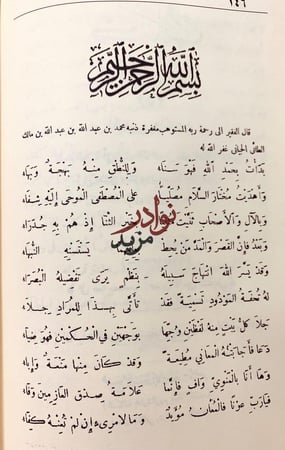 ١٤٦
بسم الله الرحمن الرحيم
قال الفقير الى رحمة ربه المستوهب مغفرة ذنبه محمد بن عبد الله بن عبد الله بن مالك
الطائى الجيانى غفر الله له
بَدَأتُ بِحَمدِ اللهِ فَهوَ سَنَاءُ وَلِلنُّطقِ مِنهُ بَهْجَةٌ وَبَهَاءُ
وَأَهْدَيتُ مُختَارَ السَّلَامِ مُصَلِّيًا عَلَى المُصْطَفَى المُوحَى إِلَيهِ شِفَاءُ
وَبِالآلِ وَالأَصْحَابِ ثَنَّيْتُ الثَّنَا إِذْ هُمْ بِهِ جُدَرَاءُ
وَبَعْدُ فَإِنَّ القَصْرَ وَالمَدَّ مَنْ يُحِطْ يَسْتَسْنِهِ النُّبَهَاءُ
وَقَدْ يَسَّرَ اللهُ انْتِهَاجَ سَبِيلِهِ بِنَظْمٍ يَرَى تَفْضِيلَهُ البُصَرَاءُ
لَهُ تُحْفَةُ المَوْدُودِ تَسْمِيَةٌ فَقَدْ تَأَتَّى بِهَذَا لِلْمُرَادِ جَلَاءُ
جَلَا كُلُّ بَيْتٍ مِنْهُ لَفْظَيْنِ وَجْهَا بِوَجْهَيْنِ فِي الحُكْمَيْنِ فَهْوَ ضِيَاءُ
دَعَا فَأَجَابَتْهُ المَعَانِي مُطِيعَةً وَقَدْ كَانَ مِنْهَا مَنْعَةٌ وَإِبَاءُ
وَهَا أَنَا بِالمَنْوِيِّ وَافٍ فَإِنَّمَا عَلَامَةُ صِدْقِ العَازِمِينَ وَفَاءُ
فَيَارَبِّ عَوْنًا فَالمُعَانُ مُؤَيَّدٌ وَمَا لِامْرِىءٍ إِنْ لَمْ تُعِنْهُ كِفَاءُ
نوادر
مزيد